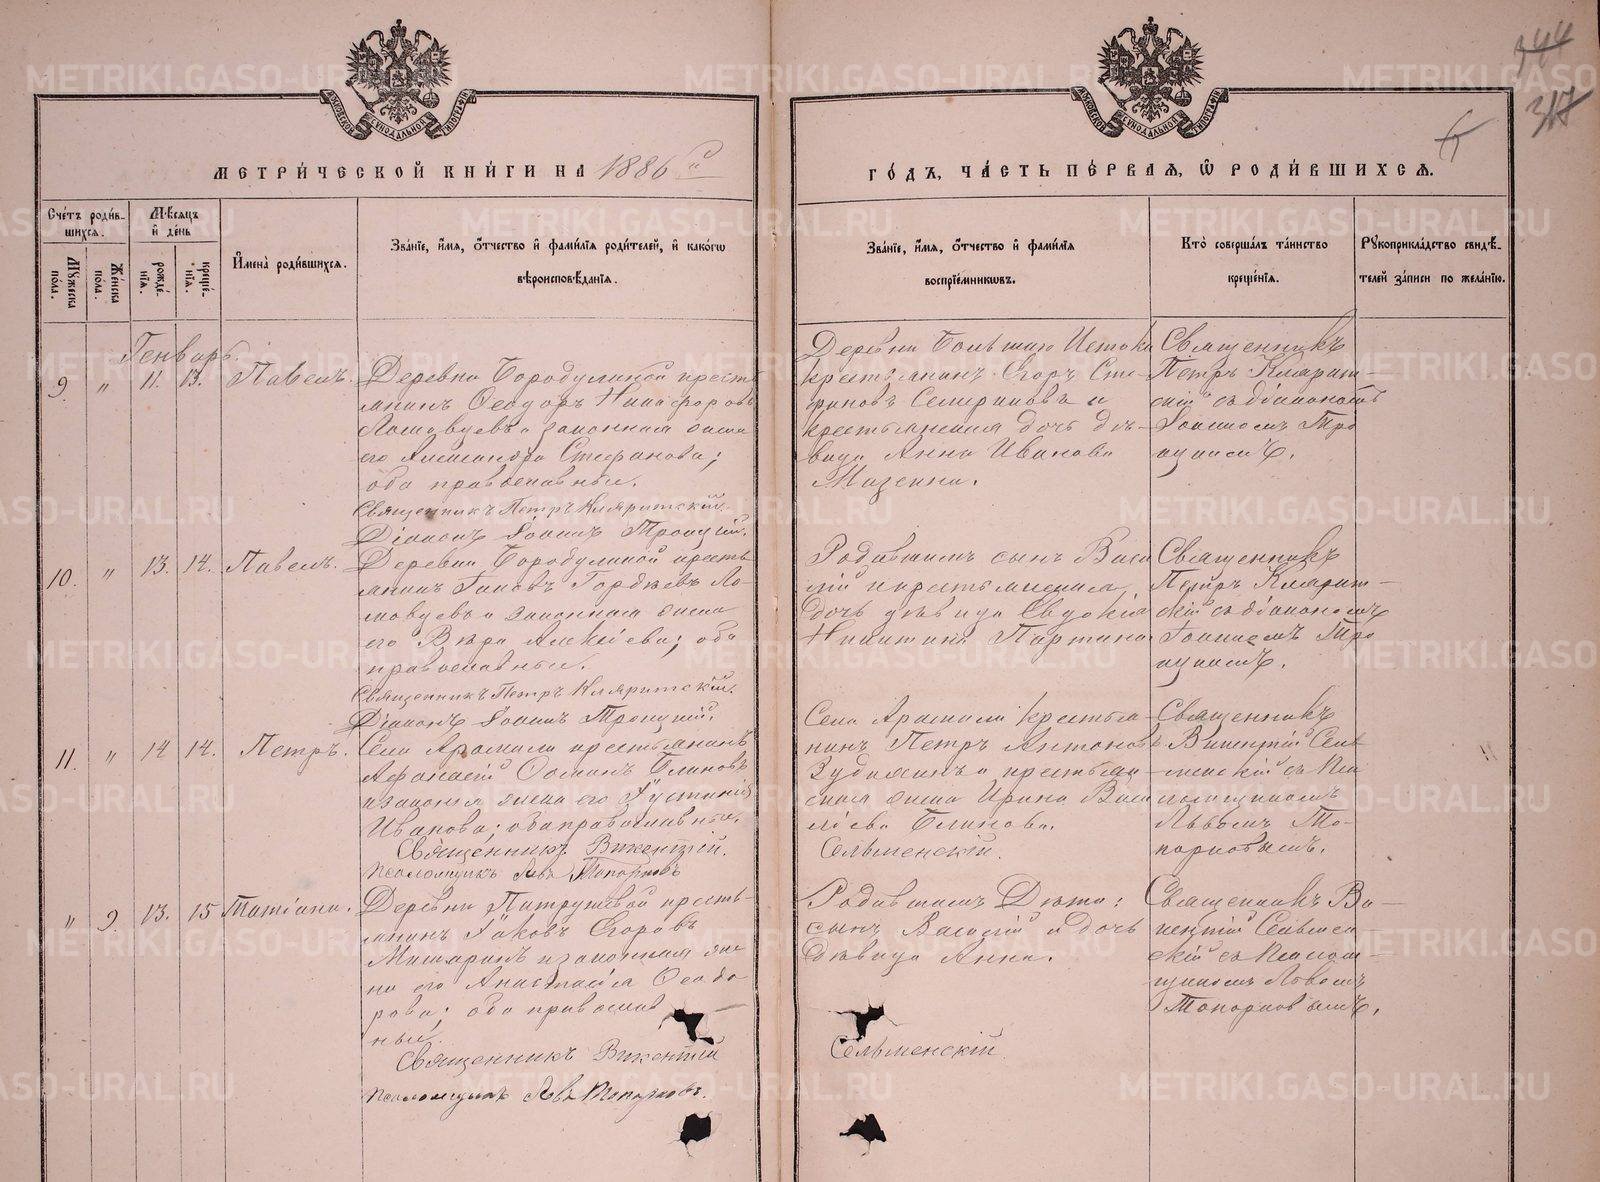 344
317
6
МЕТРИ́ЧЕСКОЙ КНИ́ГИ НА 1886 й
ГО́ДЪ, ЧА́СТЬ ПЕ́РВАЯ, Ѡ РОДИ́ВШИХСЯ.
Сче́тъ роди́в-
шихся.
Мѣ́сяцъ
и҆ де́нь
Мꙋжеска по́ла.
Же́нска по́ла.
рожде́-
нїя.
креще́-
нїя.
И҆мена̀ роди́вшихся.
Зва́нїе, и҆́мя, о҆́тчество и҆ фами́лїя роди́телей, и҆ како́гѡ
вѣроисповѣ́данїя.
Зва́нїе, и҆́мя, о҆́тчество и҆ фами́лїя
воспрїе́мникѡвъ.
Кто̀ соверша́лъ та́инство
креще́нїя.
Рꙋкоприкла́дство свидѣ́-
телей за́писи по жела́нїю.
Генварь.
9. " 11. 13. Павелъ.
Деревни Бородулиной кресть
янинъ Ѳеодоръ Никифоровъ
Ломовцевъ и законная жена
его Александра Стефанова;
оба православные.
Священникъ Петръ Кляритскій.
Діаконъ Іоаннъ Троицкій.
Деревни Большаго Истока
крестьянинъ Егоръ Сте
фановъ и
крестьянская дочь дѣ-
вица Анна Иванова
Мазеина.
Священникъ
Петръ Кляритскій
съ діакономъ
Іоанномъ Тро
ицкимъ.
10. " 13. 14. Павелъ.
Деревни Бородулиной кресть
янинъ Гордѣевъ Ло-
мовцевъ и законная жена
его Вѣра Алексѣева; оба
православные.
Священникъ Петръ Кляритскій.
Діаконъ Іоаннъ Троицкій.
Родившихъ сынъ Васи
лій и крестьянская
дочь дѣвица Евдокія
Никитина Партина
Священникъ
Петръ Кляритскій
съ діакономъ
Іоанномъ Тро
ицкимъ.
11. " 14 14. Петръ.
Села Арамили крестьянинъ
Афанасій Блиновъ
и законная жена его Іустинія
Иванова; оба православные.
Священникъ Викентій
Псаломщикъ Левъ Топорковъ
Села Арамили крестья
нинъ Петръ Антоновъ
и крестьян
ская жена Ирина Васи
ліева Блинова.
Сельменскій.
Священникъ
Викентій Сель
менскій съ Пса
ломщикомъ
Львомъ То-
порковымъ.
" 9. 13. 15 Татіана.
Деревни Патрушевой кресть-
янинъ Іаковъ Егоровъ
и законная же
на его Анастасія Ѳеодо
рова; оба православ
ные.
Священникъ Викентій
Псаломщикъ Левъ Топорковъ.
Родившихъ Дѣти:
сынъ Василій и дочь
дѣвица Анна.
Сельменскій
Священникъ Ви
кентій Сельмен
скій съ Псалом
щикомъ Львомъ
Топорковымъ.
METRIKI.GASO-URAL.RU